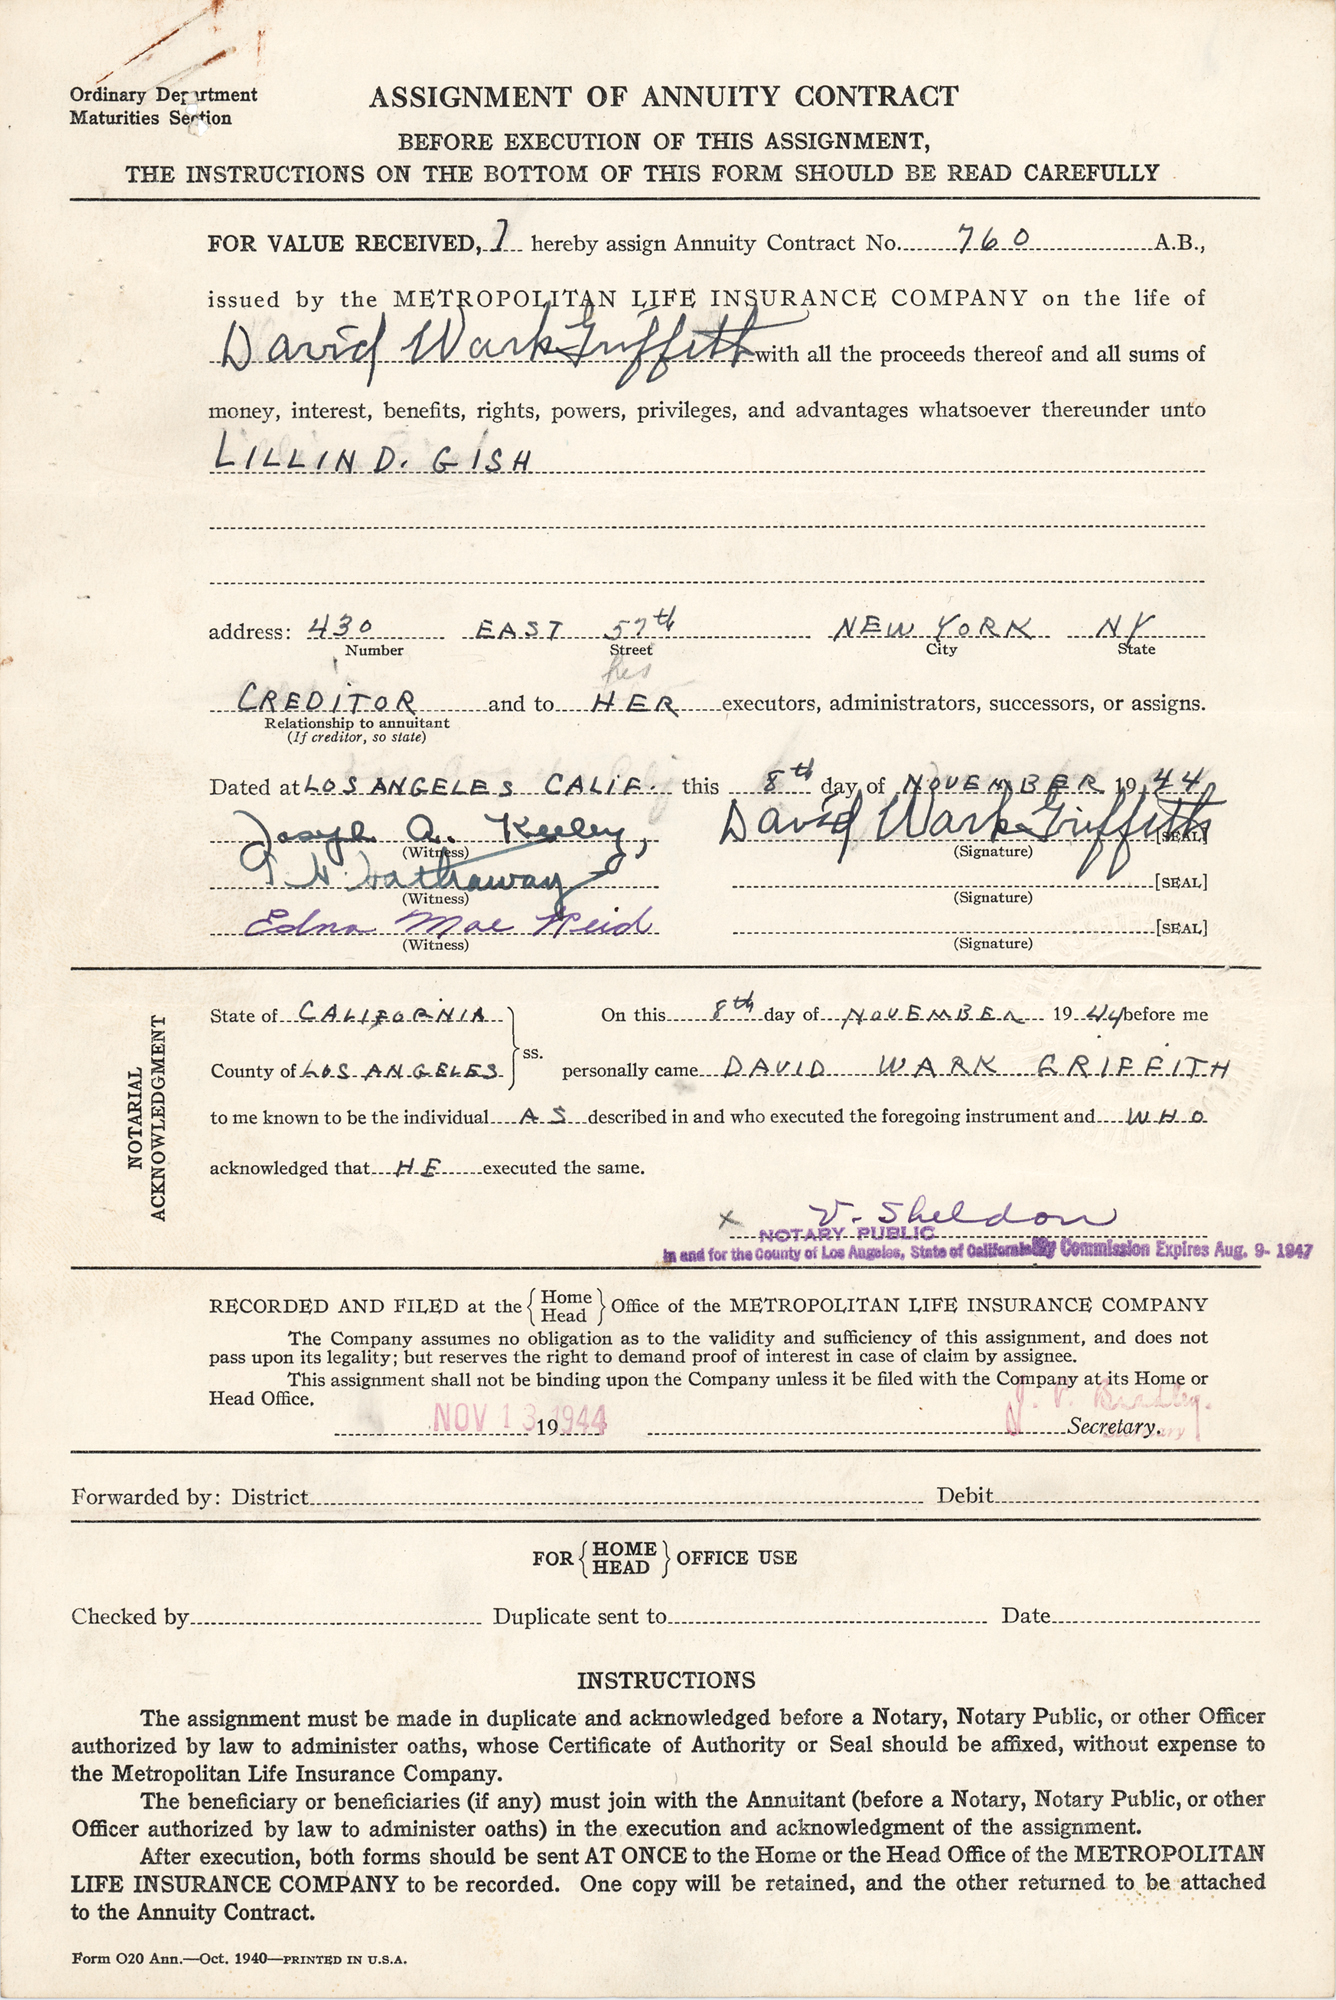 Ordinary Department
Maturities Section
ASSIGNMENT OF ANNUITY CONTRACT
BEFORE EXECUTION OF THIS ASSIGNMENT,
THE INSTRUCTIONS ON THE BOTTOM OF THIS FORM SHOULD BE READ CAREFULLY
FOR VALUE RECEIVED, I hereby assign Annuity Contract No. 760 A.B.,
issued by the METROPOLITAN LIFE INSURANCE COMPANY on the life of
David Wark Griffith with all the proceeds thereof and all sums of
money, interest, benefits, rights, powers, privileges, and advantages whatsoever thereunder unto
LILLIN D. GISH
address: 430 EAST 57th NEW YORK NY
Number Street City State
his
CREDITOR and to HER executors, administrators, successors, or assigns.
Relationship to annuitant
(If creditor, so state)
Dated at LOS ANGELES CALIF. this 8th day of NOVEMBER 1944
Joseph A. Keeley, David Wark Griffith [SEAL]
(Witness) (Signature)
Hathaway [SEAL]
(Witness) (Signature)
Edna Mae Reid [SEAL]
(Witness) (Signature)
NOTARIAL
ACKNOWLEDGMENT
State of CALIFORNIA On this 8th day of NOVEMBER 1944 before me
ss.
County of LOS ANGELES personally came DAVID WARK GRIFFITH
to me known to be the individual AS described in and who executed the foregoing instrument and WHO
acknowledged that HE executed the same.
X V. Sheldon
NOTARY PUBLIC
In and for the County of Los Angeles, State of California My Commission Expires Aug. 9- 1947
RECORDED AND FILED at the { Home Head } Office of the METROPOLITAN LIFE INSURANCE COMPANY
The Company assumes no obligation as to the validity and sufficiency of this assignment, and does not
pass upon its legality; but reserves the right to demand proof of interest in case of claim by assignee.
This assignment shall not be binding upon the Company unless it be filed with the Company at its Home or
Head Office.
NOV 13 1944 19 J. P. Bradley. Secretary.
Secretary
Forwarded by: District Debit
FOR { HOME HEAD } OFFICE USE
Checked by Duplicate sent to Date
INSTRUCTIONS
The assignment must be made in duplicate and acknowledged before a Notary, Notary Public, or other Officer
authorized by law to administer oaths, whose Certificate of Authority or Seal should be affixed, without expense to
the Metropolitan Life Insurance Company.
The beneficiary or beneficiaries (if any) must join with the Annuitant (before a Notary, Notary Public, or other
Officer authorized by law to administer oaths) in the execution and acknowledgment of the assignment.
After execution, both forms should be sent AT ONCE to the Home or the Head Office of the METROPOLITAN
LIFE INSURANCE COMPANY to be recorded. One copy will be retained, and the other returned to be attached
to the Annuity Contract.
Form O20 Ann.—Oct. 1940—PRINTED IN U.S.A.